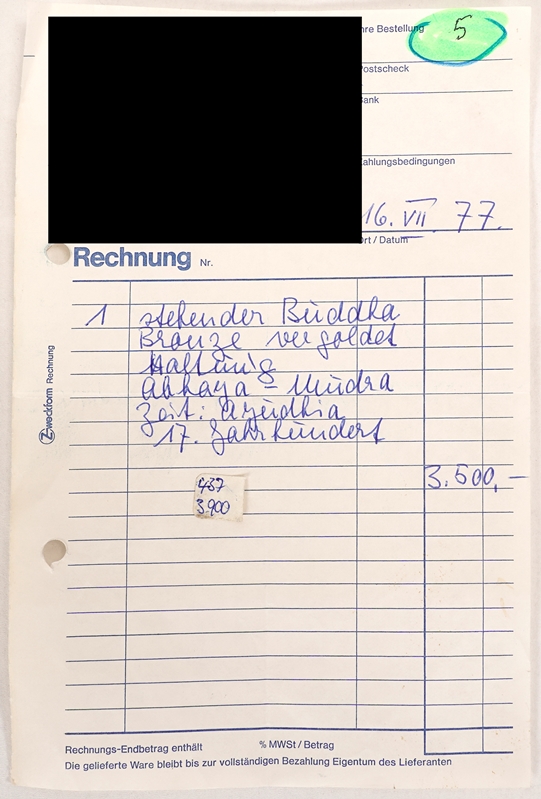 5
hre Bestellung
Postscheck
Bank
Zahlungsbedingungen
16. VII 77.
Ort / Datum
Rechnung Nr.
1 stehender Buddha
Bronze vergoldet
Haltung
Abhaya - Mudra
Zeit: Ayudhia
17. Jahrhundert
3.500,-
487
3.900
Zweckform Rechnung
Rechnungs-Endbetrag enthält % MWSt / Betrag
Die gelieferte Ware bleibt bis zur vollständigen Bezahlung Eigentum des Lieferanten